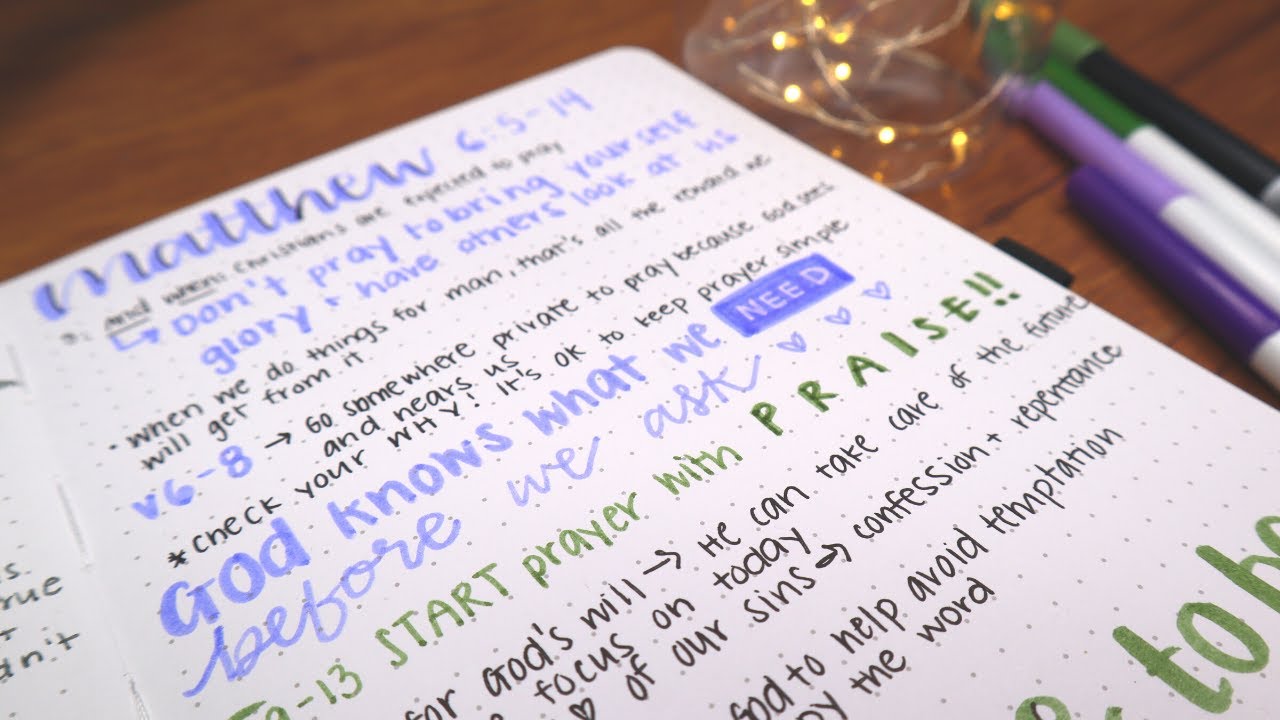 Matthew 6:5-14
and when: Christians are expected to pray
Don't pray to bring yourself
glory + have others look at us
• When we do things for man, that's all the reward we
will get from it
v6-8 → Go somewhere private to pray because God sees
and hears us
*check your WHY! It's ok to keep prayer simple
GOD knows what we NEED
before we ask
9-13 START prayer with PRAISE!!
for God's will → He can take care of the future
focus on today
of our sins → confession + repentance
God to help avoid temptation
by the word
to be